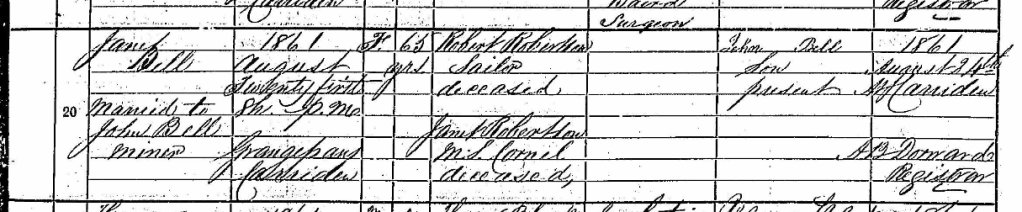 Carriden
Baird
Registrar
Surgeon
Janet 1861 F. 65 Robert Robertson John Bell 1861
Bell August yrs Sailor Son August 24th
Twenty first deceased present At Carriden
20 Married to 8h. P.M.
John Bell Janet Robertson
Miner Grangepans M.S. Cornel A B Dorward
Carriden deceased, Registrar